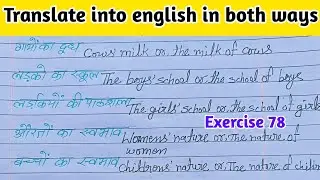 Translate into english in both ways
गायों का दूध Cows' milk or. the milk of cows
लड़कों का स्कूल The boys' school or. the school of boys
लड़कियों की पाठशाला The girls' school or. the school of girls
Exercise 78
औरतों का स्वभाव Womens' nature or. The nature of
women
बच्चों का स्वभाव Childrens' nature or. The nature of